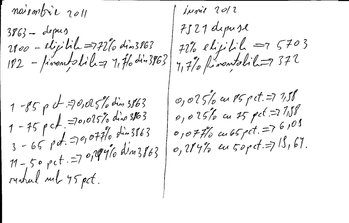 noiembrie 2011
3863 - depuse
2800 - eligibile => 72% din 3863
182 - finantabile => 4,7% din 3863
1 - 85 pct => 0,025% din 3863
1 - 75 pct. => 0,025% din 3863
3 - 65 pct. => 0,077% din 3863
11 - 50 pct. => 0,284% din 3863
restul sub 45 pct.
iunie 2012
7921 depuse
72% eligibile => 5703
4,7% finantabile => 372
0,025% cu 85 pct. => 1,98
0,025% cu 75 pct. => 1,98
0,077% cu 65 pct. => 6,09
0,284% cu 50 pct. => 13,64.